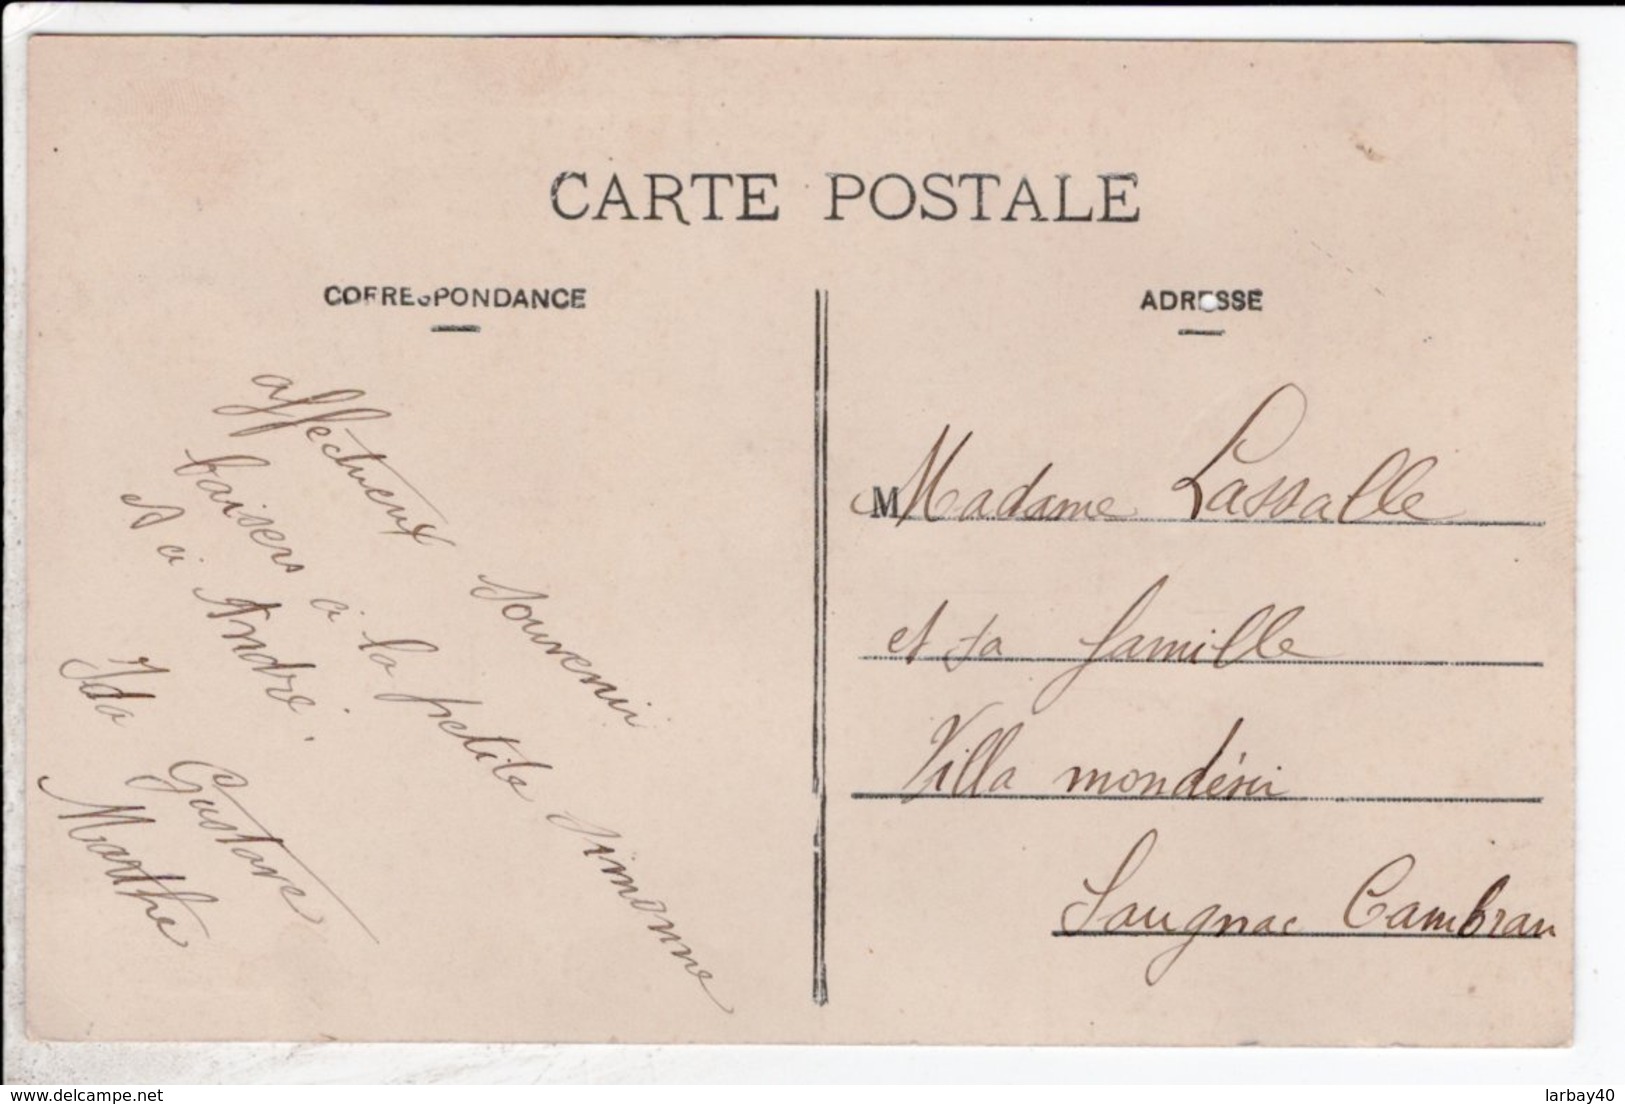 CARTE POSTALE
CORRESPONDANCE
ADRESSE
affectueux souvenir
baisers à la petite Simonne
et à André.
Ida Gustave
Marthe
M Madame Lassalle
et sa famille
Villa mondésir
Saugnac Cambran
delcampe.net
larbay40